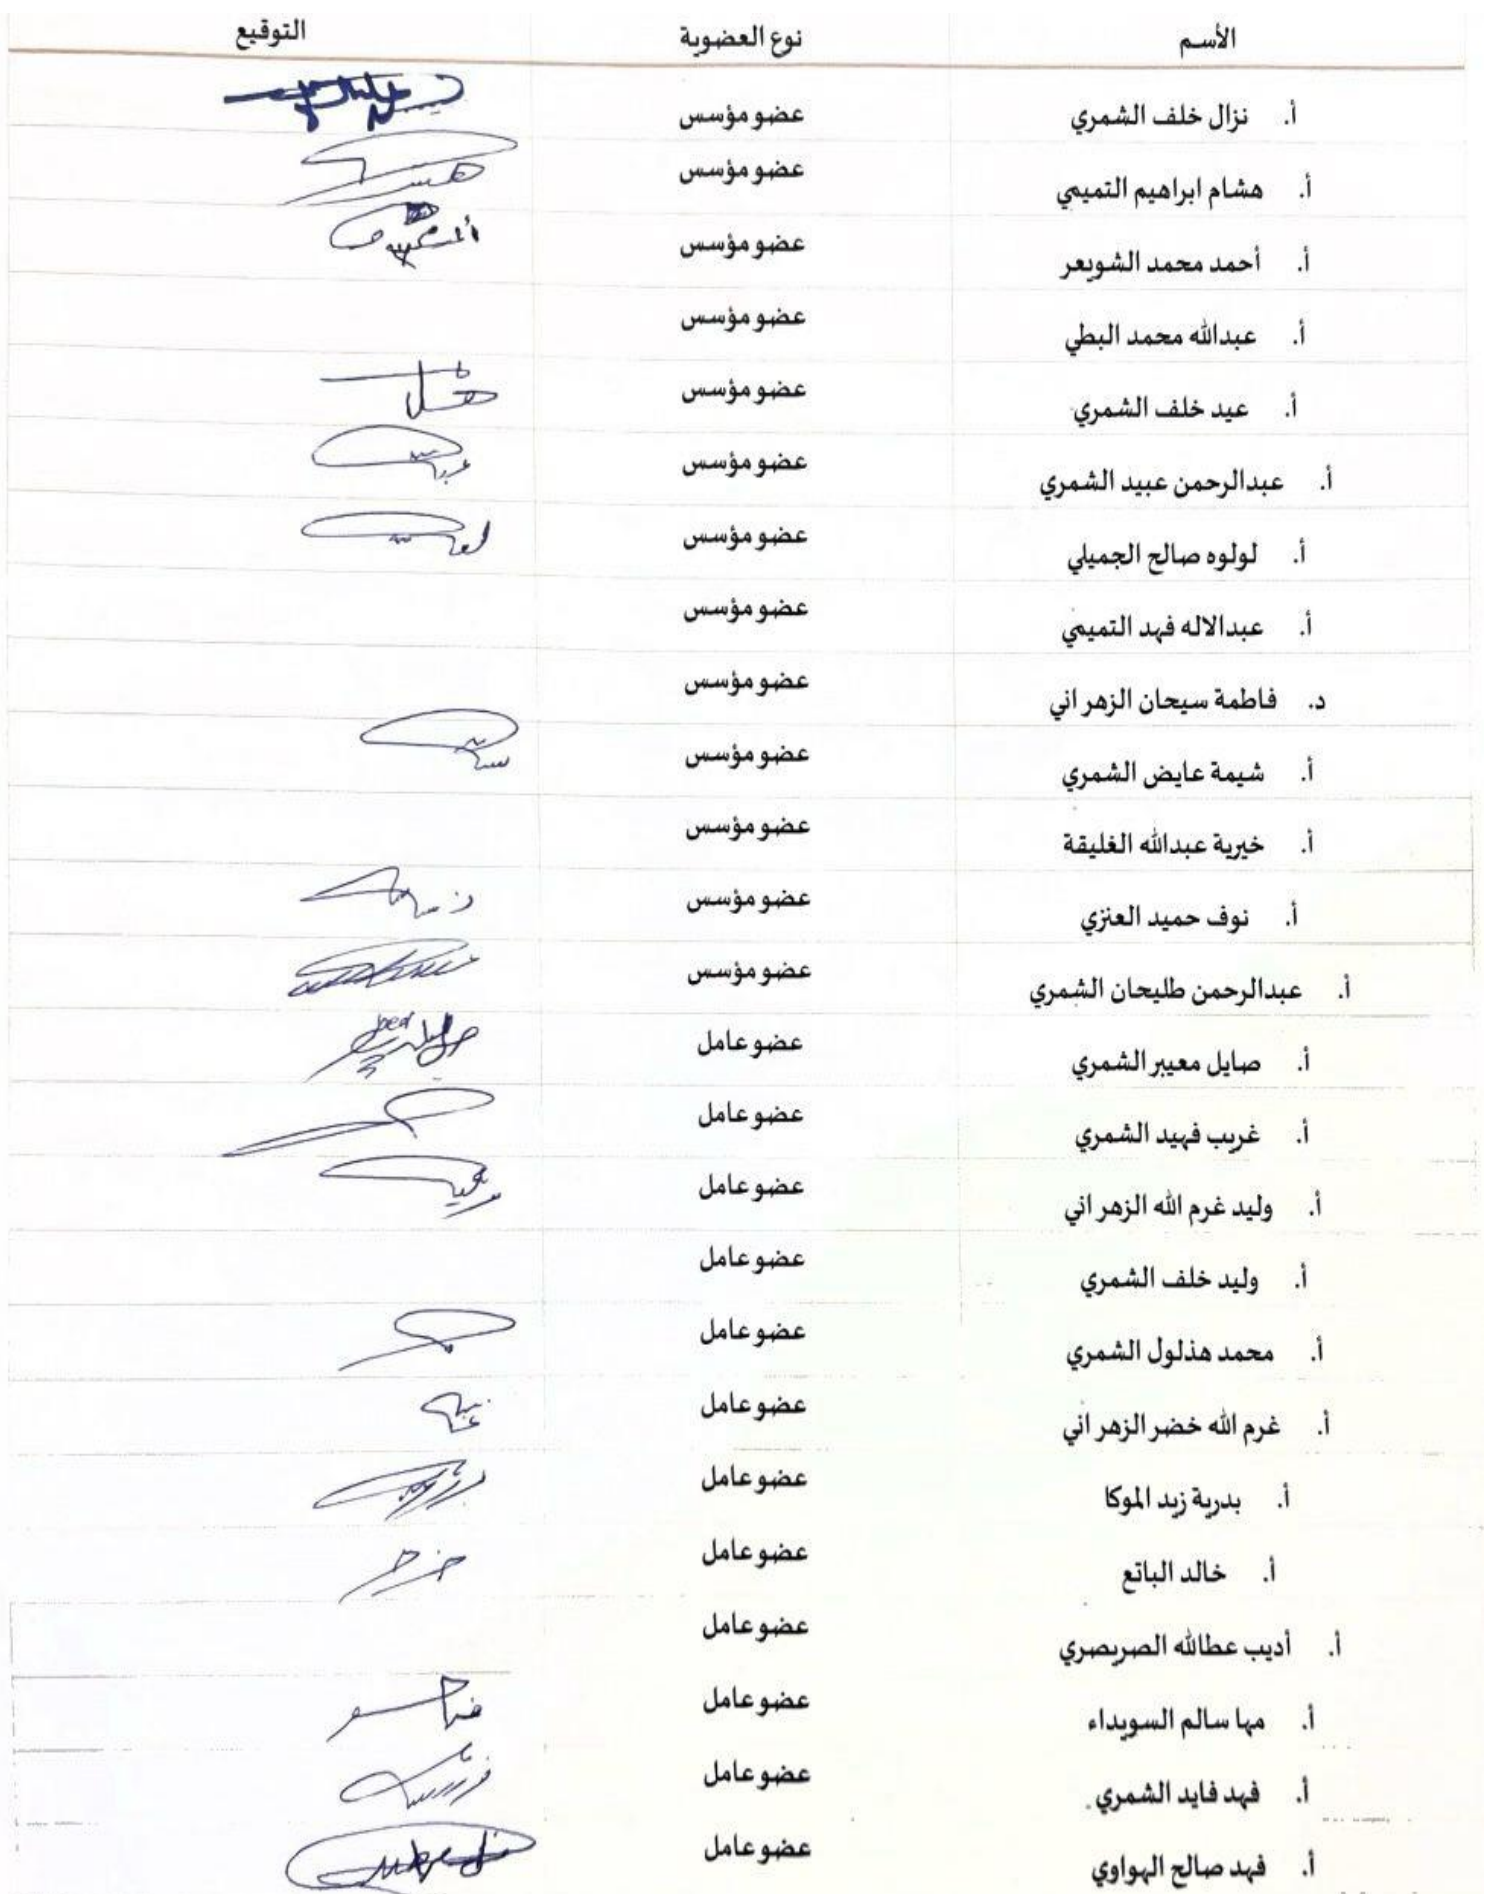 الأسم نوع العضوية التوقيع
أ. نزال خلف الشمري عضو مؤسس
أ. هشام ابراهيم التميمي عضو مؤسس
أ. أحمد محمد الشويعر عضو مؤسس
أ. عبدالله محمد البطي عضو مؤسس
أ. عيد خلف الشمري عضو مؤسس
أ. عبدالرحمن عبيد الشمري عضو مؤسس
أ. لولوه صالح الجميلي عضو مؤسس
أ. عبدالاله فهد التميمي عضو مؤسس
د. فاطمة سيحان الزهراني عضو مؤسس
أ. شيمة عايض الشمري عضو مؤسس
أ. خيرية عبدالله الغليقة عضو مؤسس
أ. نوف حميد العنزي عضو مؤسس
أ. عبدالرحمن طليحان الشمري عضو مؤسس
أ. صايل معيبر الشمري عضو عامل
أ. غريب فهيد الشمري عضو عامل
أ. وليد غرم الله الزهراني عضو عامل
أ. وليد خلف الشمري عضو عامل
أ. محمد هذلول الشمري عضو عامل
أ. غرم الله خضر الزهراني عضو عامل
أ. بدرية زيد الموكا عضو عامل
أ. خالد الباتع عضو عامل
أ. أديب عطالله الصريصري عضو عامل
أ. مها سالم السويداء عضو عامل
أ. فهد فايد الشمري عضو عامل
أ. فهد صالح الهواوي عضو عامل